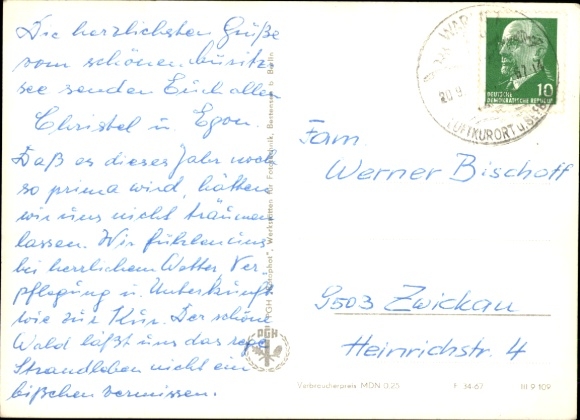 Die herzlichsten Grüße
vom schönen
see senden Euch allen
Christel u. Egon.
Daß es dieses Jahr noch
so prima wird, hätten
wir uns nicht träumen
lassen. Wir fühlen uns
bei herrlichem Wetter, Ver-
pflegung u. Unterkunft
wie zur Kur. Der schöne
Wald läßt uns das rege
Strandleben nicht ein
bißchen vermissen.
Werkstätten für Fototechnik, Bestensee b. Berlin
PGH
Fam.
Werner Bischoff
9503 Zwickau
Heinrichstr. 4
Verbraucherpreis MDN 0.25
F 34-67
III 9 109
10
DEUTSCHE
DEMOKRATISCHE REPUBLIK
20.9.
LUFTKURORT u.